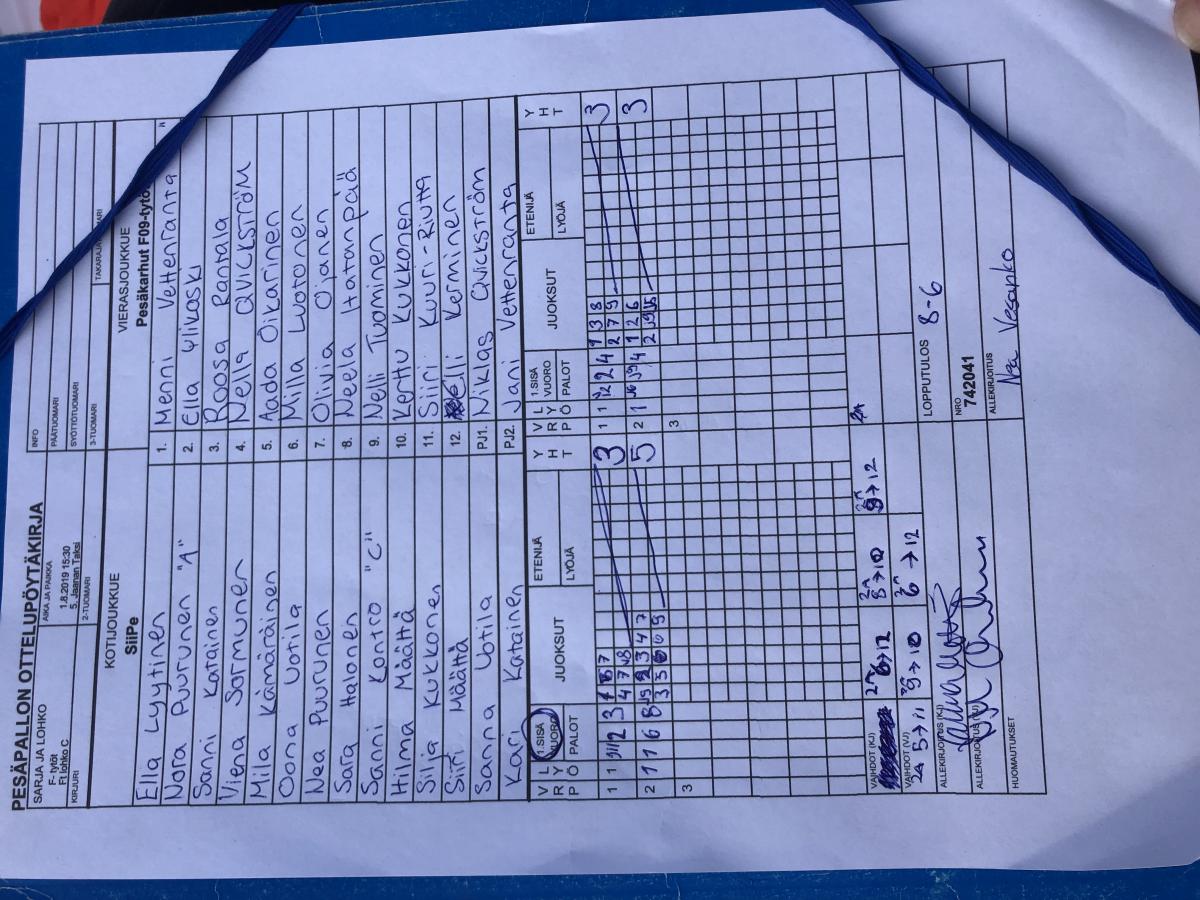 PESÄPALLON OTTELUPÖYTÄKIRJA
SARJA JA LOHKO
F- tytöt
Ft lohko C
AIKA JA PAIKKA
1.8.2019 15:30
5. Jaanan Taksi
INFO
PÄÄTUOMARI
SYÖTTÖTUOMARI
KIRJURI
2-TUOMARI
3-TUOMARI
TAKARAJATUOMARI
KOTIJOUKKUE
SiiPe
VIERASJOUKKUE
Pesäkarhut F09-tytöt
Ella Lyytinen 1. Menni Vettenranta "
Nora Puurunen "A" 2. Ella Ylikoski
Sanni Katainen 3. Roosa Rantala
Viena Sormunen 4. Nella QVICKSTRÖM
Milla Kämäräinen 5. Aada Oikarinen
Oona Uotila 6. Milla Luotonen
Nea Puurunen 7. Olivia Ojanen
Sara Halonen 8. Neela Hatanpää
Sanni Kontro "C" 9. Nelli Tuominen
Hilma Määttä 10. Kerttu Kukkonen
Silja Kukkonen 11. Siiri Kuuri-Riutta
Siiri Määttä 12. Elli Kerminen
Sanna Uotila PJ1. Niklas Qvickström
Kari Katainen PJ2. Jani Vettenranta
V R P L Y Ö 1.SISÄ VUORO PALOT JUOKSUT ETENIJÄ LYÖJÄ Y H T
V R P L Y Ö 1.SISÄ VUORO PALOT JUOKSUT ETENIJÄ LYÖJÄ Y H T
1 1 2 3 4 7 3
1 1 2 4 1 3 8 2 7 9 3
2 1 1 6 8 3 4 7 3 5 9 5
2 1 4 1 2 6 2 3
3
3
VAIHDOT (KJ) 6→12 8→10 9→12
VAIHDOT (VJ) 5→11 9→10 6→12
ALLEKIRJOITUS (KJ)
LOPPUTULOS 8-6
ALLEKIRJOITUS (VJ)
NRO
742041
HUOMAUTUKSET
ALLEKIRJOITUS
Nea Vesanko